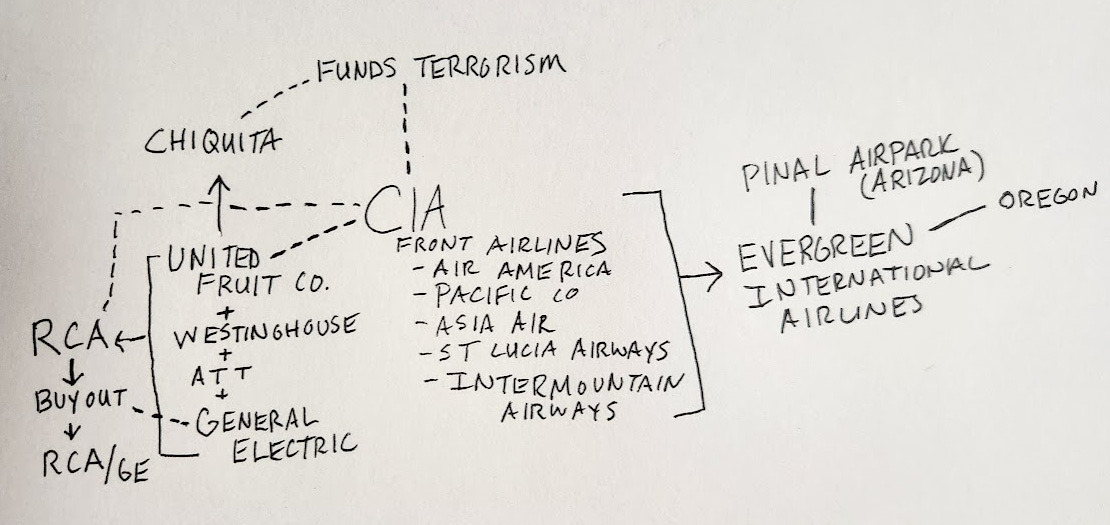 FUNDS TERRORISM
CHIQUITA
CIA
FRONT AIRLINES
- AIR AMERICA
- PACIFIC CO
- ASIA AIR
- ST LUCIA AIRWAYS
- INTERMOUNTAIN
AIRWAYS
UNITED
FRUIT CO.
+
WESTINGHOUSE
+
ATT
+
GENERAL
ELECTRIC
RCA
BUYOUT
RCA/GE
PINAL AIRPARK
(ARIZONA)
EVERGREEN
INTERNATIONAL
AIRLINES
OREGON